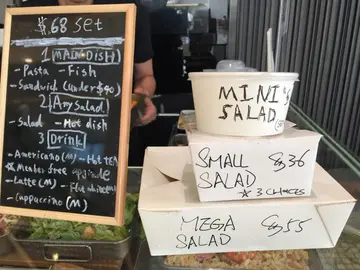 $68 Set
1 MAIN DISH
- Pasta - Fish
- Sandwich (under $40)
2 Any Salad
- Salad - Hot dish
3 Drink
- Americano (M) - Hot TEA
* Member free upsize
- Latte (M) - Flat white (M)
- Cappuccino (M)
MINI
SALAD
SMALL $36
SALAD
* 3 CHOICES
MEGA $55
SALAD